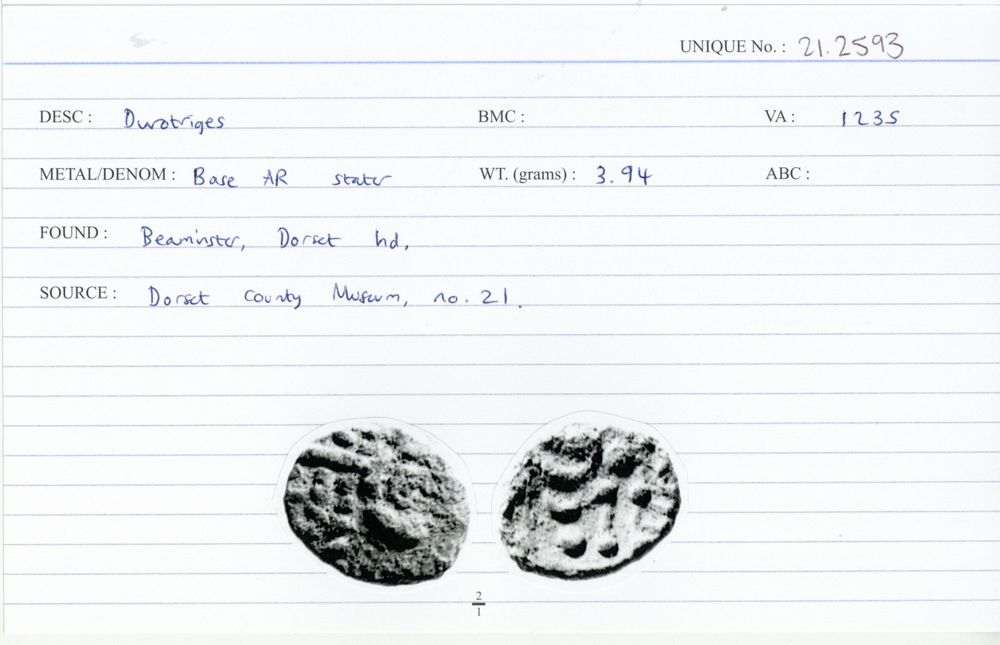 UNIQUE No. : 21.2593
DESC : Durotriges BMC : VA : 1235
METAL/DENOM : Base AR stater WT. (grams) : 3.94 ABC :
FOUND : Beaminster, Dorset hd,
SOURCE : Dorset County Museum, no. 21.
2
1